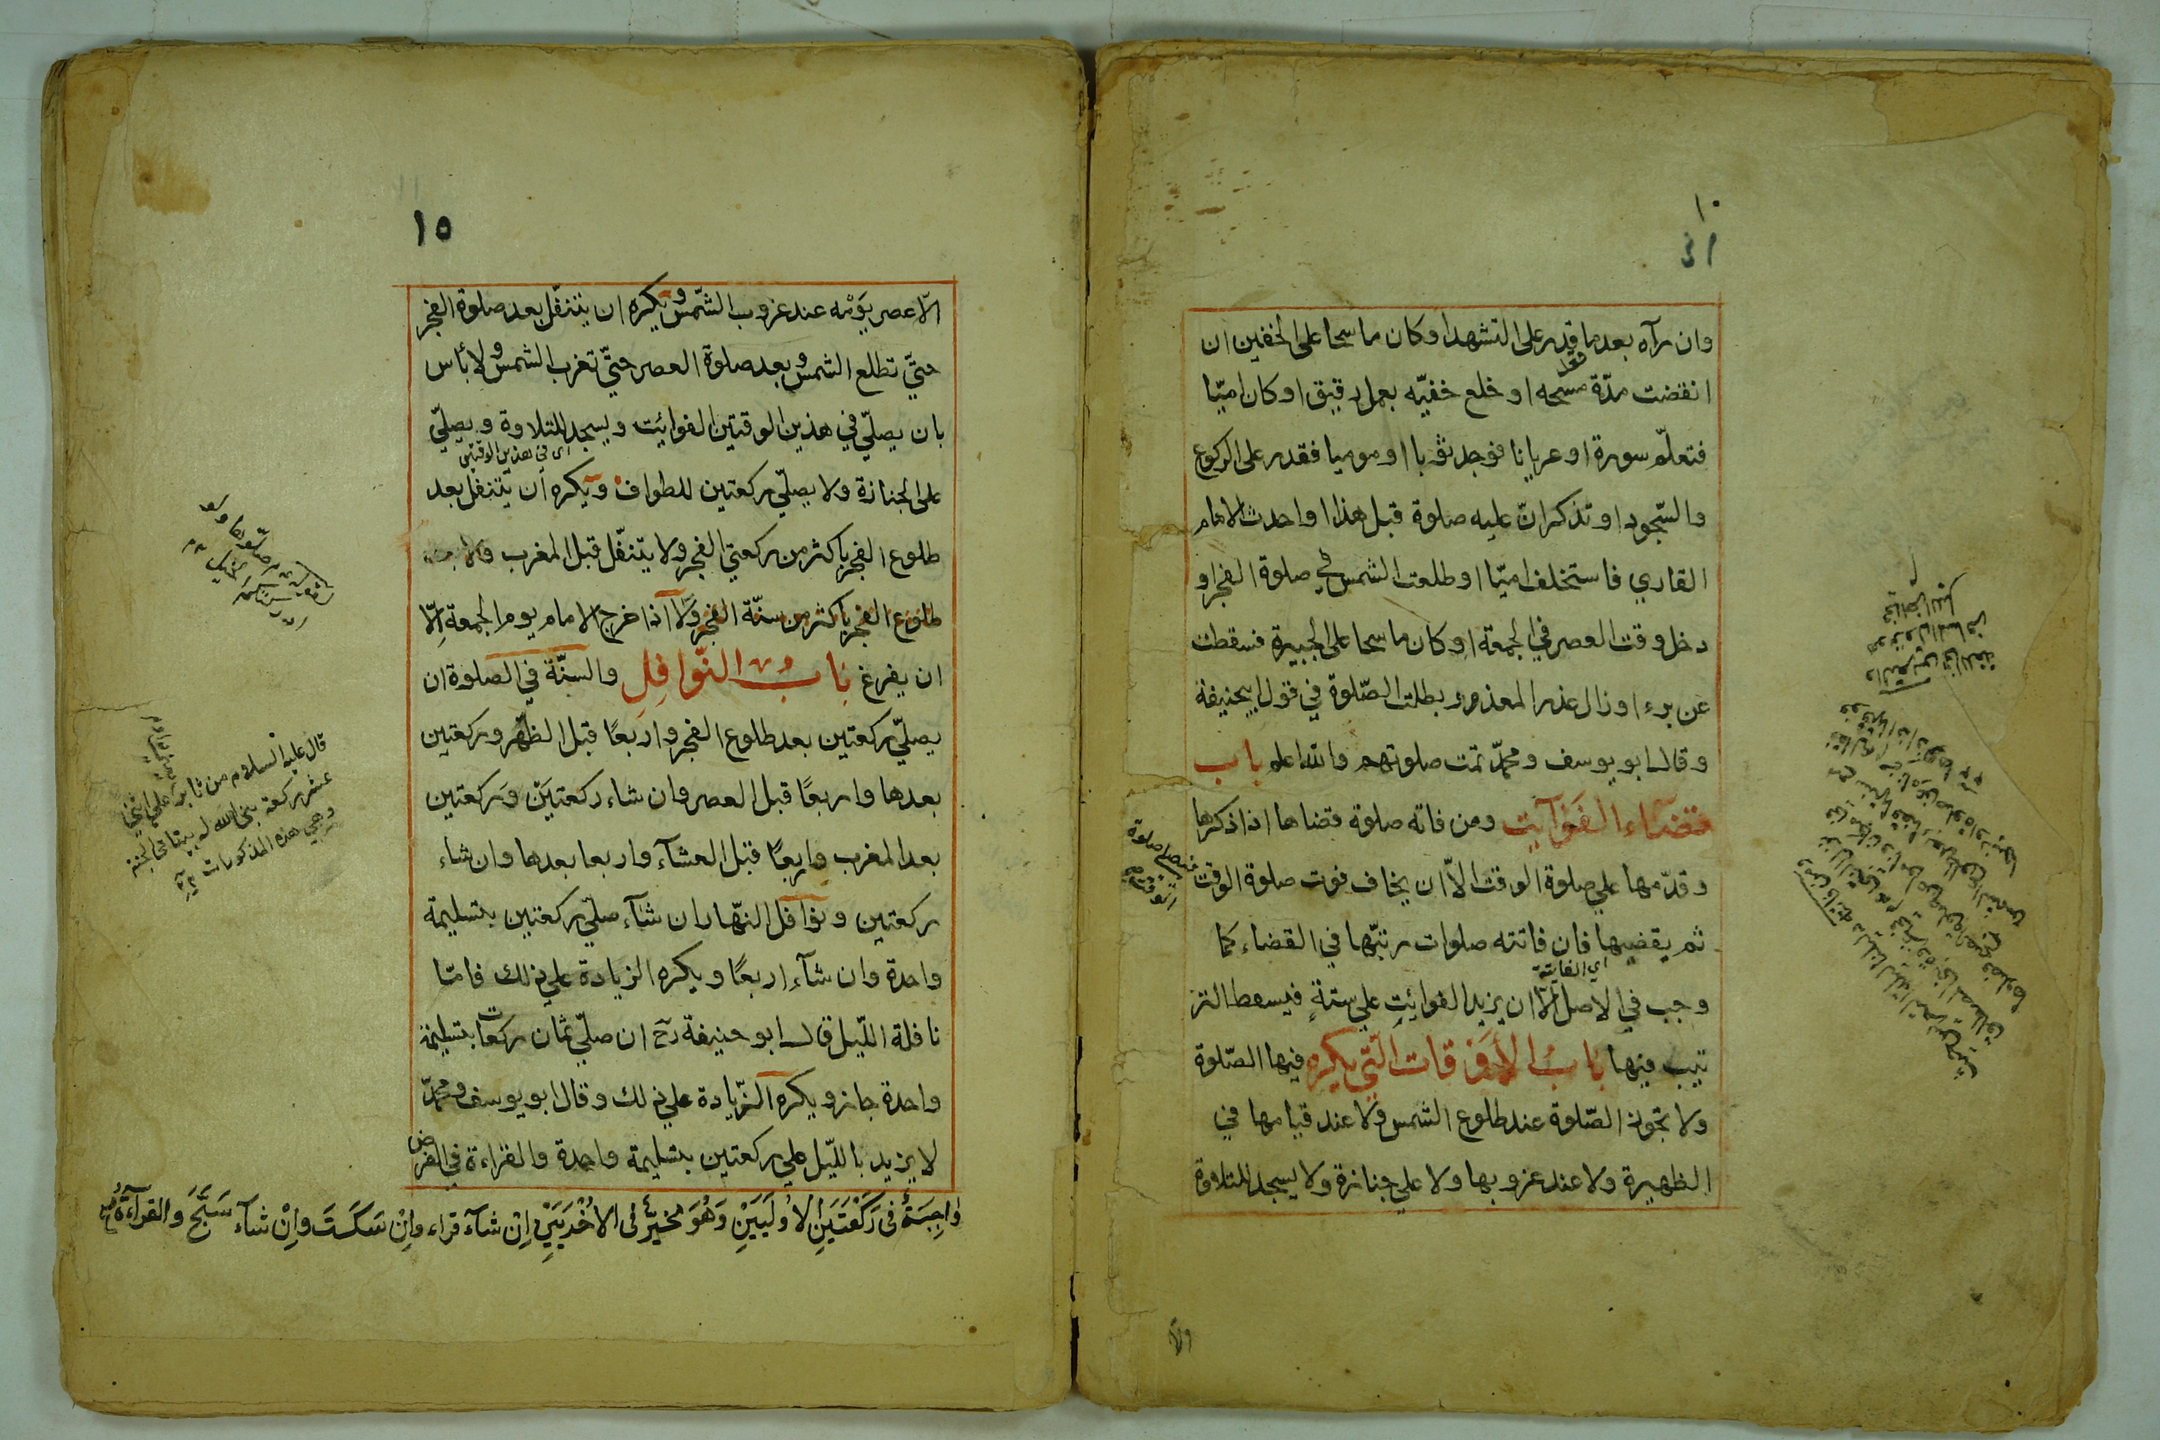 وان رآه بعد ما قدر على التشهد او كان ماسحا على الخفين ان
انقضت مدّة مسحه او خلع خفيّه بعمل رقيق او كان اميّا
فتعلّم سورة او عريانا فوجد ثوبا او موميا فقدر على الركوع
والسّجود او تذكر انّ عليه صلوة قبل هذا او احدث الامام
القاري فاستخلف اميّا او طلعت الشمس في صلوة الفجر او
دخل وقت العصر في الجمعة او كان ماسحا على الجبيرة فسقطت
عن برء او زال عذر المعذور بطلت الصّلوة في قول ابيحنيفة
وقال ابو يوسف ومحمّد تمت صلوتهم والله اعلم باب
قضاء الفوآيت ومن فاته صلوة قضاها اذا ذكرها
وقدّمها علي صلوة الوقت الاّ ان يخاف فوت صلوة الوقت
ثم يقضيها فان فاتته صلوات رتبّها في القضاء كما
اي الفايتة
وجب في الاصل الاّ ان يزيد الفوائيت علي ستةٍ فيسقط التر
تيب فيها باب الأوقات الّتي يكره فيها الصّلوة
ولا تجوز الصّلوة عند طلوع الشمس ولا عند قيامها في
الظهيرة ولا عند غروبها ولا علي جنازة ولا يسجد للتلاوة
والا
١٥
الاّ عصر يَوْمه عند غروب الشّمس ويكره ان يتنفّل بعد صلوة الفجر
حتيّ تطلع الشمس وبعد صلوة العصر حتيّ تغرب الشمس ولا بأس
بان يصلّي في هذين الوقتين الفوائيت ويسجد للتلاوة ويصلّي
اى في هذين الوقتين
على الجنازة ولا يصلّي ركعتين للطواف ويكره ان يتنفّل بعد
طلوع الفجر باكثر من ركعتي الفجر ولا يتنفّل قبل المغرب
طلوع الفجر باكثر من سنّة الفجر ولا اذا خرج الامام يوم الجمعة الّا
ان يفرغ باب النّوافِلِ والسنّة في الصلوة ان
يصلّي ركعتين بعد طلوع الفجر واربعًا قبل الظهر وركعتين
بعدها واربعًا قبل العصر وان شاء ركعتَيْن وَركعتين
بعد المغرب واربعًا قبل العشآء واربعا بعدها وان شاء
ركعتين ونوافل النهّار ان شآء صلّي ركعتين بتسليمة
واحدة وان شآء اربعًا ويكره الزيادة علي ذلك فامّا
نافلة اللّيل قال ابو حنيفة رح ان صلّي ثمان ركعات بتسليمة
واحدة جاز ويكره الزّيادة علي ذلك وقال ابو يوسف ومحمّد
لا يزيد بالليّل علي ركعتين بتسليمة واحدة والقراءة في الفرض
وٰاجِبَةٌ فى رَكْعَتَيَنِ الأُولَيَيَنِ وَهُوَ مُخيَرٌّ فى الاُخْرَيَيْنِ اِنْ شآء قراء وإنْ سَكَتَ وإنْ شآء سَبَّحَ والقرآءةُ
قال عليه السلام من ثابر علي اثني
عشر ركعة بني الله له بيتا في الجنة
وهي هذه المذكورات